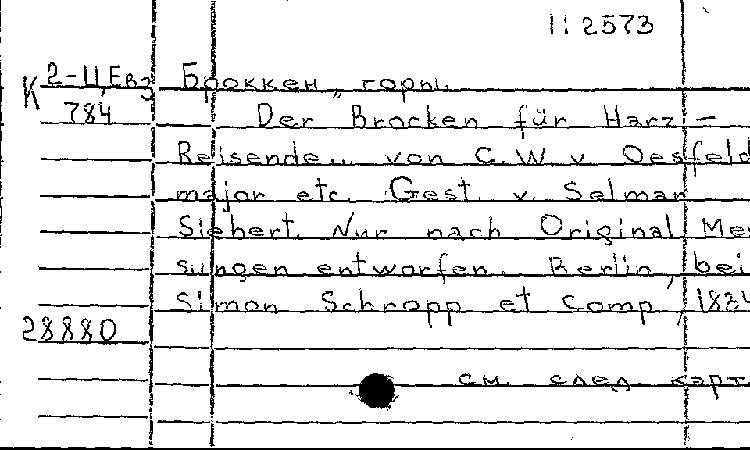 11:2573
К 2-Ц,Евз
784
Броккен, горы.
Der Brocken für Harz-
Reisende.. von C.W. v. Oesfeld
major etc. Gest. v. Selmar
Siebert. Nur nach Original Mes
sungen entworfen. Berlin, bei
Simon Schropp et Comp, 1834
28880
см. след. карт